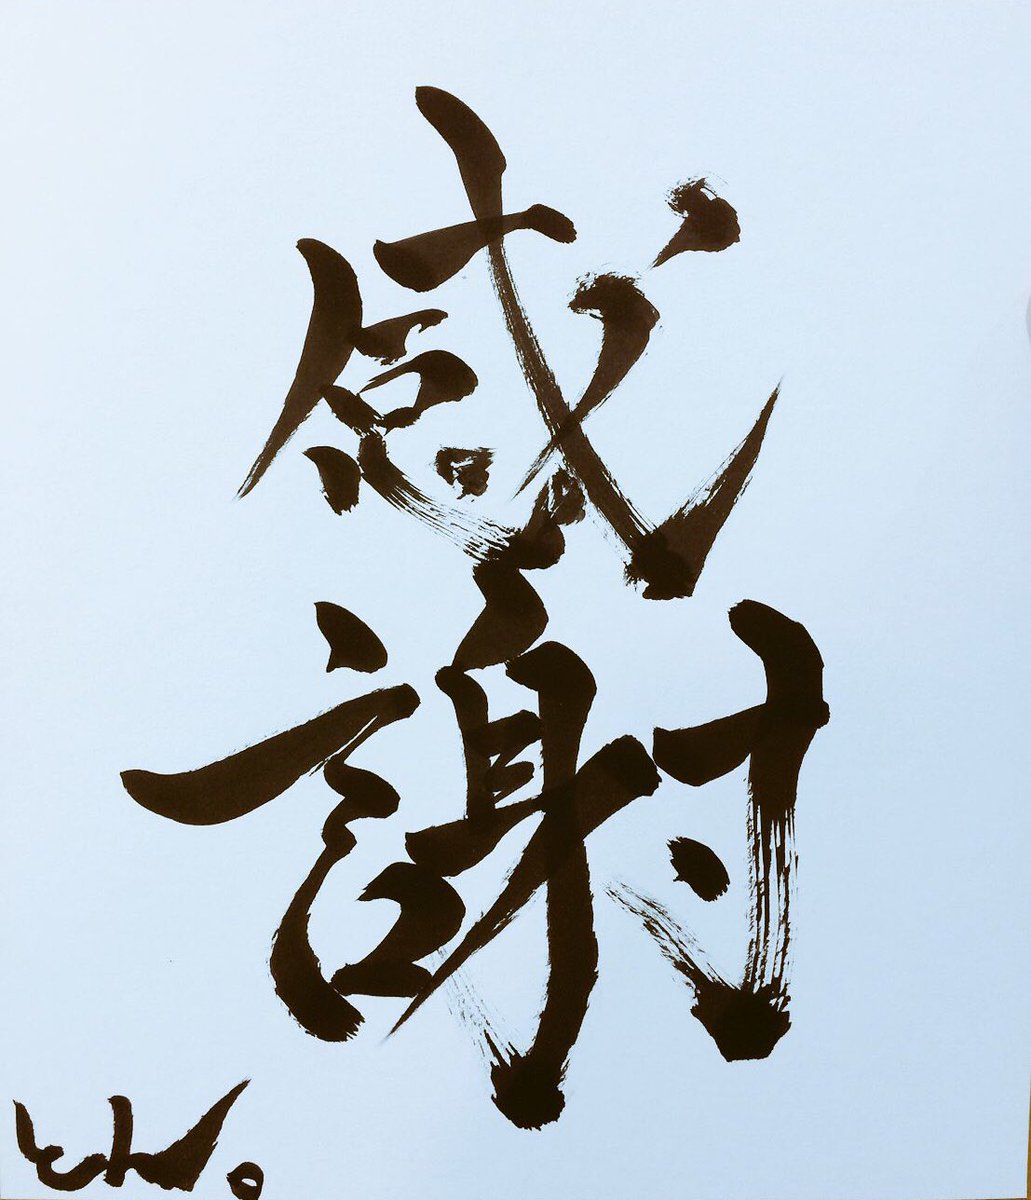 感
謝
とん。